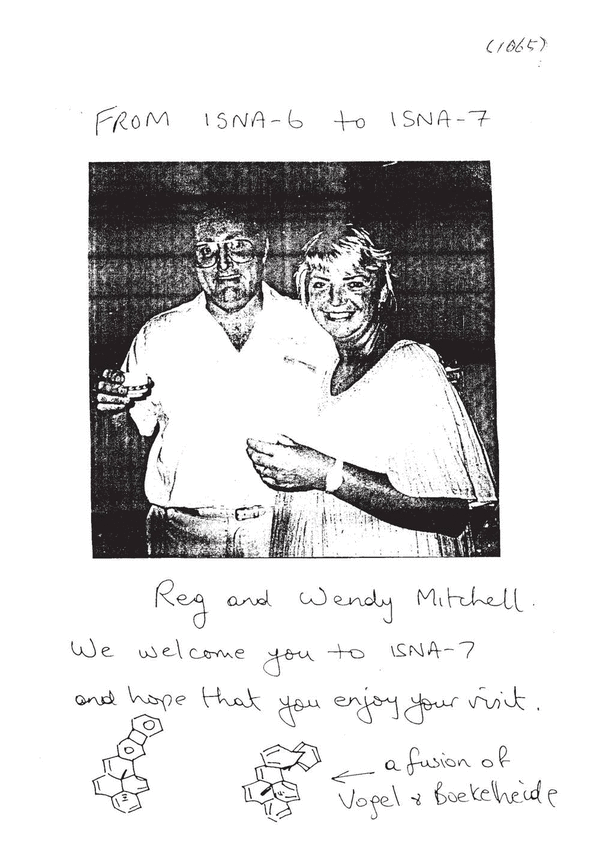 (1065)
FROM ISNA-6 to ISNA-7
Reg and Wendy Mitchell.
We welcome you to ISNA-7
and hope that you enjoy your visit.
a fusion of
Vogel & Boekelheide